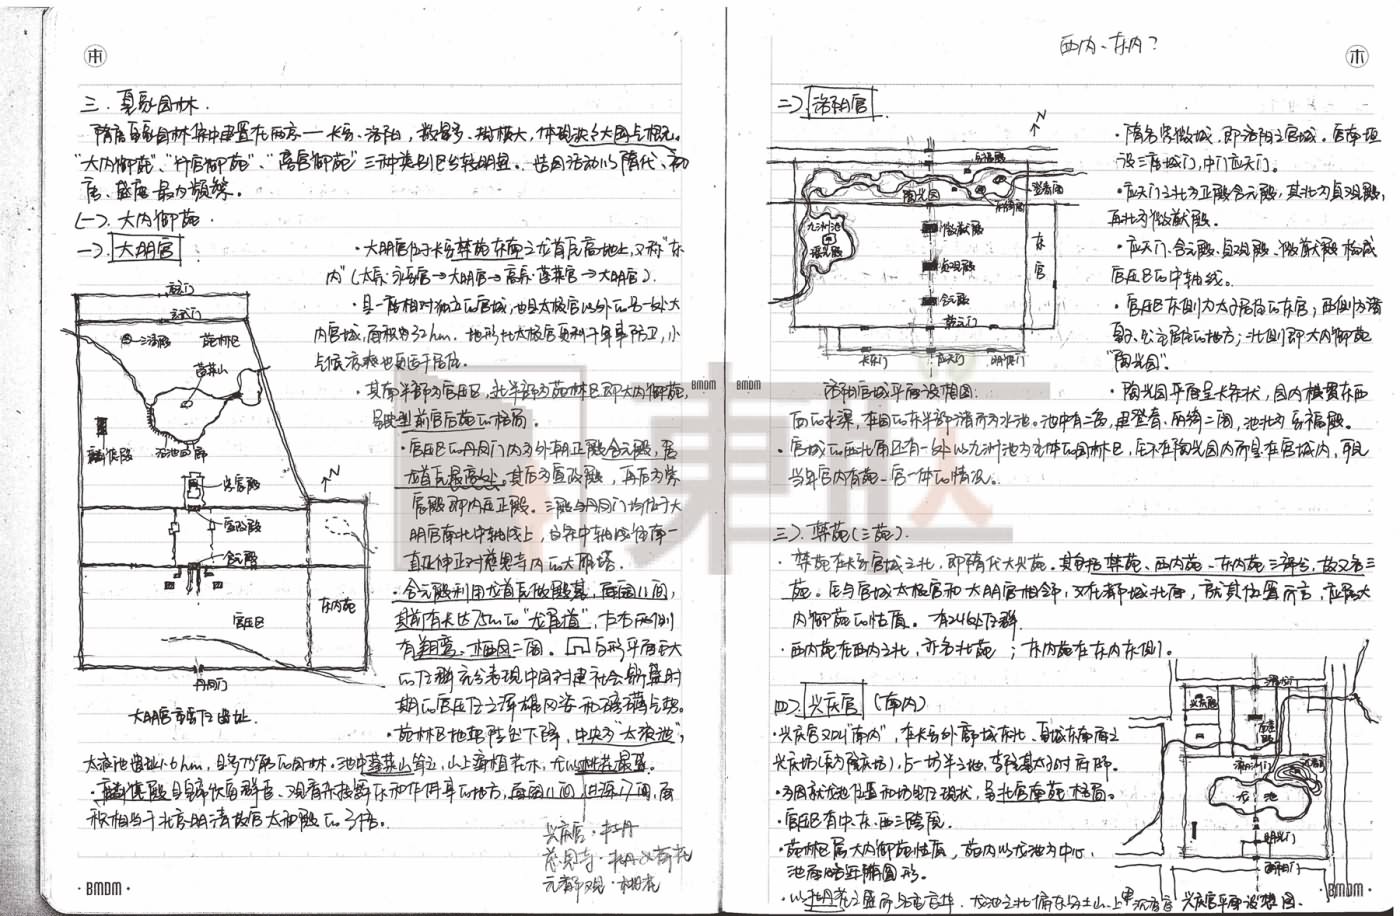 三. 皇家园林.
隋唐皇家园林集中建置在两京——长安、洛阳,数量多、规模大,体现泱泱大国气概.
“大内御苑”、“行宫御苑”、“离宫御苑”三种类别区分较明显. 造园活动以隋代、初
唐、盛唐最为频繁.
(一). 大内御苑.
一). 大明宫
·大明宫位于长安禁苑东南之龙首原高地上,又称“东
内”(太宗·永安宫→大明宫→高宗·蓬莱宫→大明宫).
·是一座相对独立的宫城,也是太极宫以外的另一处大
内宫城,面积约32hm. 地形比太极宫更利于军事防卫,小
气候凉爽也更适于居住.
·其南半部为宫廷区,北半部为苑林区即大内御苑,
呈典型前宫后苑的格局.
·宫廷区的丹凤门内为外朝正殿含元殿,居
龙首原最高处. 其后为宣政殿,再后为紫
宸殿即内廷正殿. 三殿与丹凤门均位于大
明宫南北中轴线上,这条中轴线往南一
直延伸正对慈恩寺内的大雁塔.
·含元殿利用龙首原做殿基,面阔11间,
其前有长达75m的“龙尾道”,左右两侧
有翔鸾、栖凤二阁.
期的宫廷
·苑林区地势陡然下降,中央为“太液池”,
太液池遗址1.6hm,是 园林. 池中蓬莱山耸立,山上遍植花木,尤以桃花最盛.
·麟德殿是皇帝饮宴群臣、观看杂技舞乐和作佛事的地方,面阔11间,进深17间,面
积相当于北京明清故宫太和殿的3倍.
兴庆宫·牡丹
慈恩寺·牡丹及荷花
元都观·桃花
玄武门
三清殿
苑林区
蓬莱山
麟德殿
紫宸殿
宣政殿
含元殿
宫廷区
东内苑
丹凤门
N
大明宫重要建筑遗址.
BMDM
BMDM
西内、东内?
二). 洛阳宫
·隋名紫微城,即洛阳之宫城. 宫南垣
设三座城门,中门应天门.
·应天门之北为正殿含元殿,其北为贞观殿,
再北为徽猷殿.
·应天门、含元殿、贞观殿、徽猷殿构成
宫廷区的中轴线.
·宫廷区东侧为太子居住的东宫,西侧为诸
皇子、公主居住的地方;北侧即大内御苑
“陶光园”.
·陶光园平面呈长条状,园内横贯东西
向的水渠,在园的东半部潴而为水池. 池中有二岛,建登春、丽绮二阁,池北为安福殿.
·宫城的西北角还有一处以九洲池为主体的园林区,它不在陶光园内而是在宫城内,可见
当年宫内有苑、宫苑一体的情况.
安福殿
登春阁
丽绮阁
陶光园
九洲池
瑶光殿
徽猷殿
贞观殿
含元殿
东宫
乾元门
长乐门
应天门
明德门
N
洛阳宫城平面设想图:
BMDM
三). 禁苑(三苑).
·禁苑在长安宫城之北,即隋代大兴苑. 其包括禁苑、西内苑、东内苑三部分,故又名三
苑. 它与宫城太极宫和大明宫相邻,又在都城北面,就其位置而言,应属大
内御苑的性质. 有24处建筑群.
·西内苑在西内之北,亦名北苑;东内苑在东内东侧.
四). 兴庆宫 (南内)
·兴庆宫又叫“南内”,在长安外郭城东北、皇城东南面之
兴庆坊(原为隆庆坊),占一坊半之地,李隆基太子时府邸.
·为因就龙池位置和坊里建筑现状,呈北宫南苑格局.
·宫廷区有中、东、西三路跨院.
·苑林区属大内御苑性质,苑内以龙池为中心,
池面略近椭圆形.
兴庆殿
龙池
明光门
兴庆宫平面设想图.
BMDM